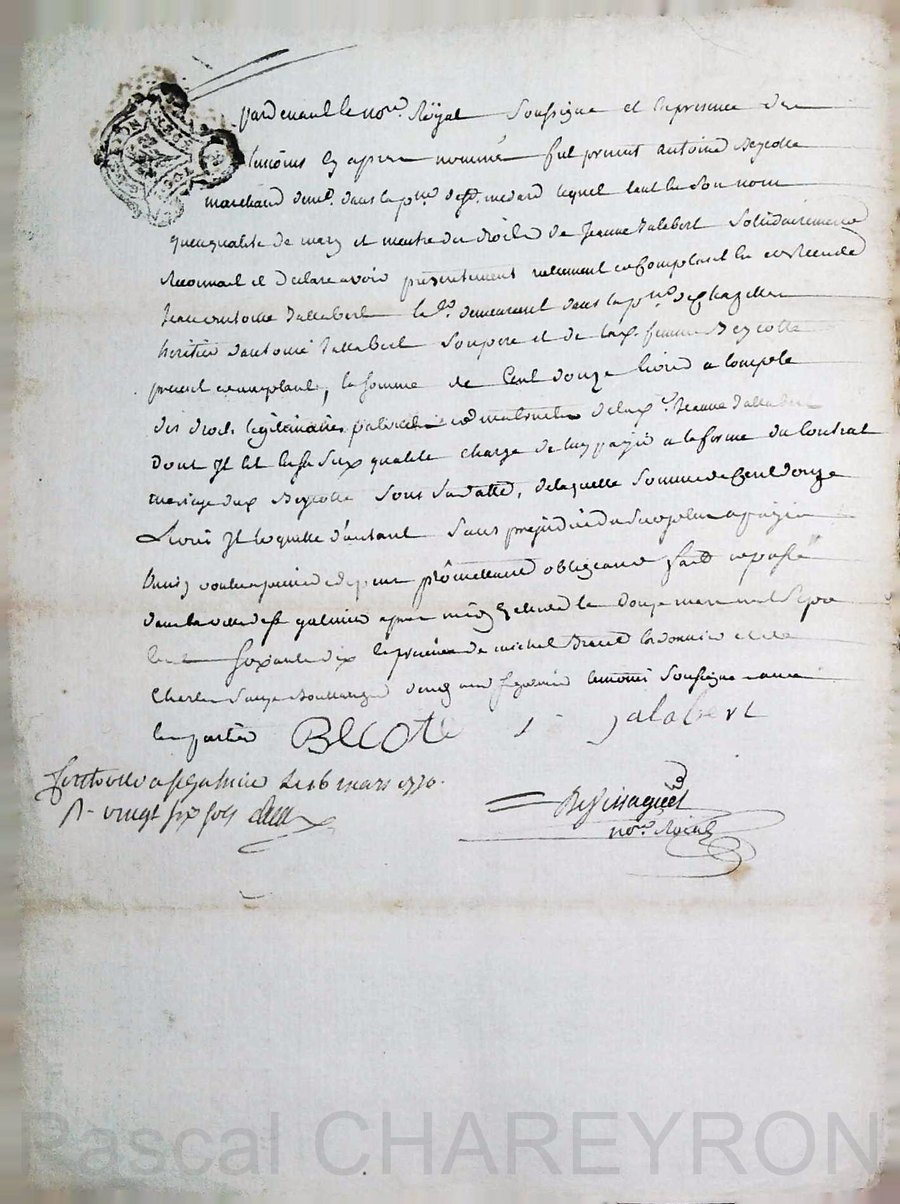 pardevant le no.re Royal Soussigné et en presence des
temoins cy apres nommés fut present antoine Beycotte
marchand dem.t dans la p.sse de s.t medard lequel tant en son nom
quen qualité de mary et maitre des droits de Jeanne Jalabert Solidairement
Reconnait et declare avoir presentement reellement et comptant Reçeu de
Jean antoine Jallabert demeurant dans la p.sse de chazelle
heritier dantoine Jallabert Son pere et de femme Beycotte
present acceptant, la Somme de Cent douze livres a compte
des droits legitimaires paternels et maternels de lad. Jeanne Jallabert
dont Il est en Sus d. qualité chargé de luy payer a la forme du Contrat
mariage des d. Beycotte Sous Sa datte, de laquelle Somme de Cent douze
Livres Il le quitte d'autant Sans prejudice du Surplus a payer
promettant obligeant fait et passé
dans la ville de s.t galmier apres midy le douze mars mil Sept
Cent Soixante dix En presence de michel cordonnier et de
Charles Boullanger dem.t aud S.t galmier temoins Soussignés avec
les parties BECOTE jalabert
Controllé a s.t galmier le 16 mars 1770.
R. vingt six sols
no.re Royal
Pascal CHAREYRON